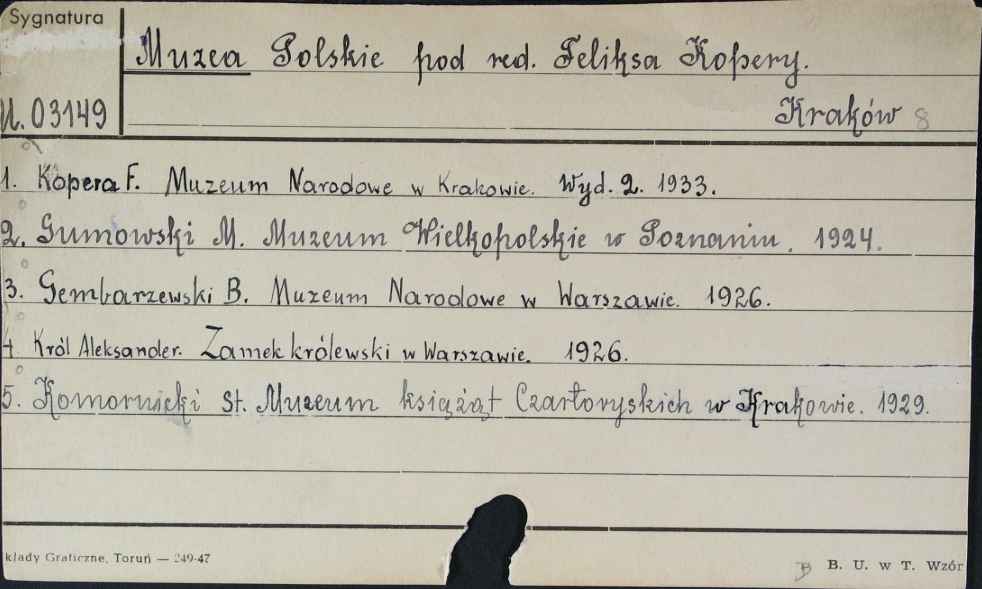 Sygnatura
Muzea Polskie pod red. Feliksa Kopery.
U. 03149
Kraków 8
1. Kopera F. Muzeum Narodowe w Krakowie. Wyd. 2. 1933.
2. Gumowski M. Muzeum Wielkopolskie w Poznaniu. 1924.
3. Gembarzewski B. Muzeum Narodowe w Warszawie. 1926.
4 Król Aleksander. Zamek królewski w Warszawie. 1926.
5. Komornicki St. Muzeum książąt Czartoryskich w Krakowie. 1929.
kłady Graficzne, Toruń — 249-47
B. U. w T. Wzór